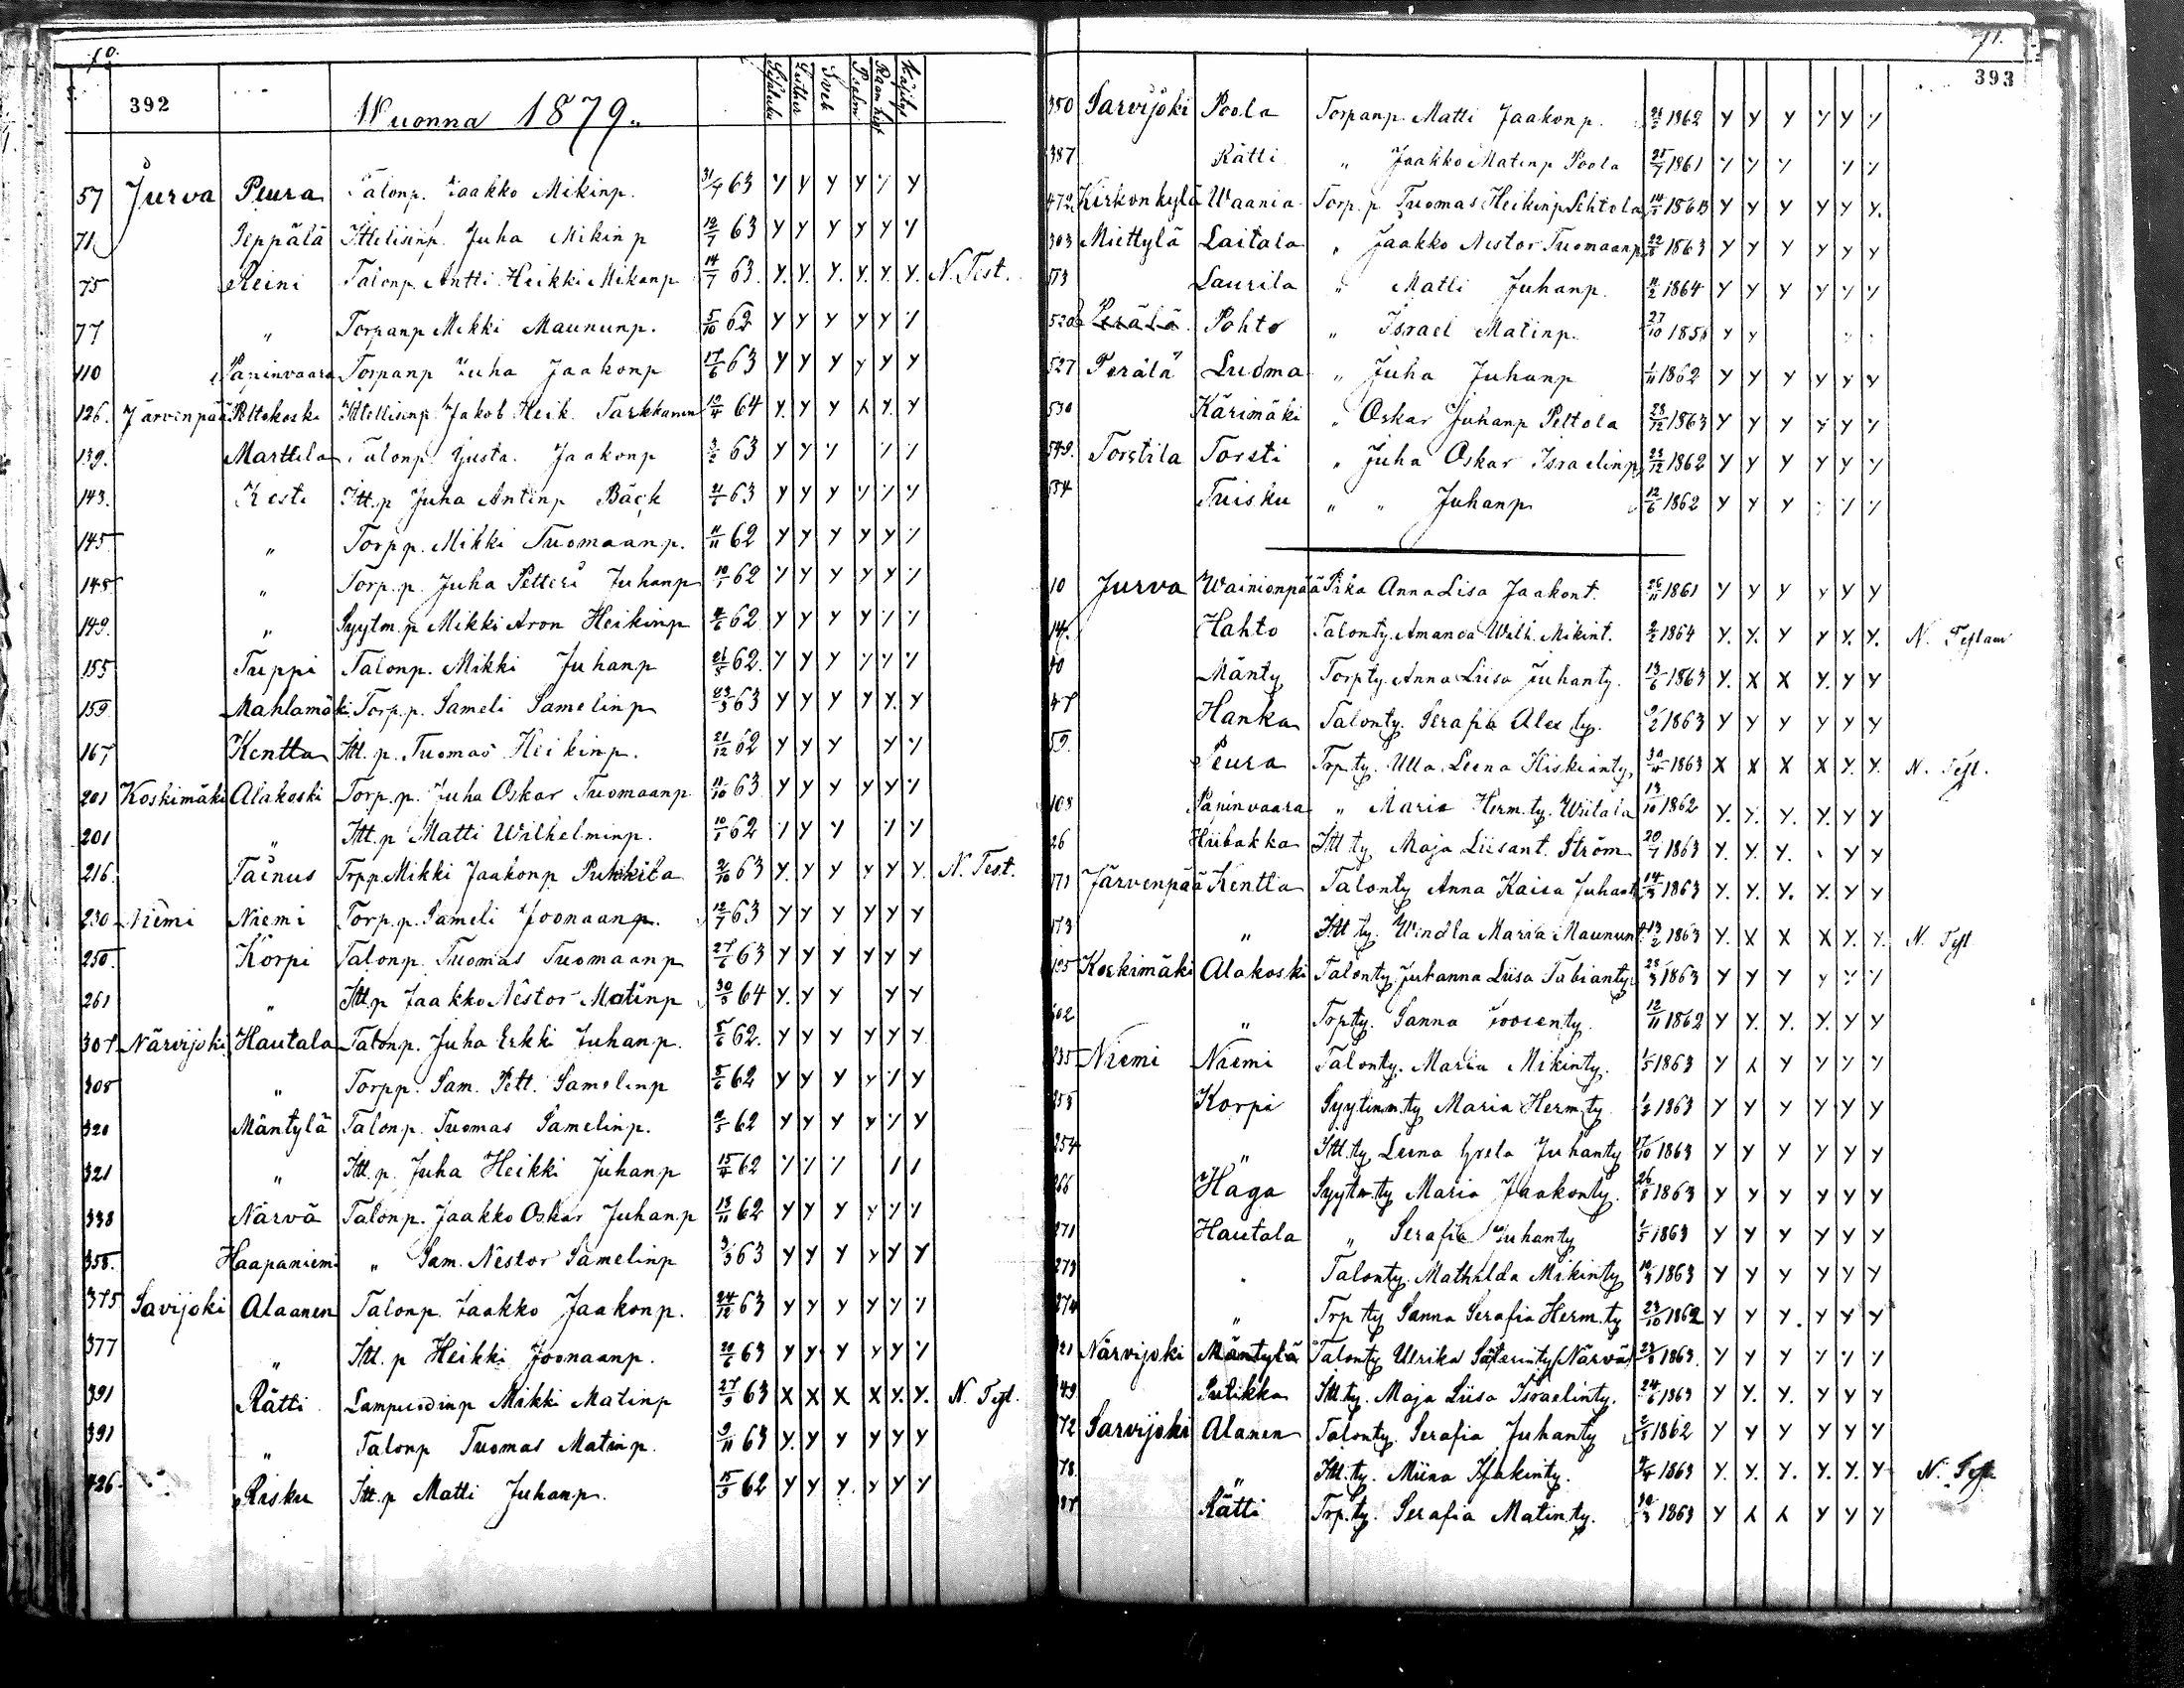 70.
392
Wuonna 1879.
Sisäluku Luther Sveb Psalm Raam. hist Käsitys
57 Jurva Peura Talonp. Jaakko Mikinp. 31/7 63 y y y y y y
71 Seppälä Ittelisenp. Juha Mikinp 12/7 63 y y y y y y
75 Reini Talonp. Antti Heikki Mikenp 14/7 63. y. y. y. y. y. y. N. Test.
77 " Torpanp Mikki Maununp. 5/10 62 y y y y y y
110 Paninvaara Torpanp Juha Jaakonp 17/6 63 y y y y y y
126. Järvenpää Peltokoski Ittellisenp. Jakob Heik. Tarkkanen 12/4 64 y. y. y x y. y
139. Marttila Talonp. Gusta. Jaakonp 63 y y y y y
143. Kesti Itt.p Juha Antinp Bäck 63 y y y y y y
145 " Torp p. Mikki Tuomaanp. 11/11 62 y y y y y y
145 " Torp. p. Juha Petteri Juhanp 62 y y y y y y
149. " Syytm. p Mikki Aron Heikinp 62 y y y y y y
155 Tuppi Talonp. Mikki Juhanp 62. y y y y y y
159. Mahlamäki Torp. p. Sameli Samelinp 23/3 63 y y y y y. y
167 Kentta Itt. p. Tuomas Heikinp. 21/12 62 y y y y y
201 Koskimäki Alakoski Torp. p. Juha Oskar Tuomaanp 63 y y y y y y
201 " Itt. p Matti Wilhelminp. 62 y y y y y
216. Tainus Trpp. Mikki Jaakonp Pukkila 63 y. y y y y y. N. Test.
230 Niemi Niemi Torp. p. Sameli Joonaanp. 12/7 63 y y y y y y
250. Korpi Talonp. Tuomas Tuomaanp 27/6 63 y y y y y y
261 " Itt. p Jaakko Nestor Matinp 64 y. y y y y
307. Närvijoki Hautala Talonp. Juha Erkki Juhanp. 62. y y y y y y
308 " Torpp. Sam. Pett. Samelinp 62 y y y y y y
320 Mäntylä Talonp. Tuomas Samelinp. 62 y y y y y y
321 " Itt. p. Juha Heikki Juhanp 15/4 62 y y y y y
338 Närvä Talonp. Jaakko Oskar Juhanp 13/11 62 y y y y y y
358. Haapaniemi " Sam. Nestor Samelinp 63 y y y y y y
375 Savijoki Alaanen Talonp. Jaakko Jaakonp. 24/12 63 y y y y y y
377 " Itt. p Heikki Joonaanp. 20/6 63 y y y y y y
391 Rätti Lampuodinp Mikki Matinp 63 x x x x y. y. N. Test.
391 " Talonp Tuomas Matinp. 9/11 63 y. y y y y y
426. Risku Itt. p Matti Juhanp. 62 y y y. y y y
71.
393
380 Sarvijoki Poola Torpanp. Matti Jaakonp. 1862 y y y y y y
387 Rätti " Jaakko Matinp Poola 1861 y y y y y
472 Kirkonkylä Waania Torp. p Tuomas Heikinp Lehtola 1863 y y y y y y.
503 Miettylä Laitala " Jaakko Nestor Tuomaanp 1863 y y y y y y
513 Laurila " Matti Juhanp. 1864 y y y y y y
520 Perälä Pohto " Israel Matinp. 27/10 185 y y
527 Perälä Luoma " Juha Juhanp 1/11 1862 y y y y y y
530 Kärimäki " Oskar Juhanp Peltola 28/12 1863 y y y y y y
549. Torstila Torsti " Juha Oskar Israelinp 23/12 1862 y y y y y y
554 Tuisku " " Juhanp 12/6 1862 y y y y y
10 Jurva Wainionpää Pika Anna Lisa Jaakont. 26/11 1861 y y y y y y
14. Hahto Talonty. Amanda Wilh. Mikint. 1864 y. y. y y y. y. N. Testam
40 Mänty Torpty. Anna Liisa Juhanty. 13/6 1863 y. x x y. y y
47 Hanka Talonty. Serafia Alex ty. 1863 y y y y y y
59. Peura Trp ty. Ulla Leena Kiskinty, 1863 x x x x y. y. N. Test.
108 Paninvaara " Maria Herm. ty. Wiitala 13/10 1862 y. y. y. y. y y
26 Hiibakka Itt ty Maja Liisant. Ström 20/7 1863 y. y. y. y y
171 Järvenpää Kentta Talonty Anna Kaisa Juhant 14/3 1863 y. y. y. y. y y
173 " Itt ty. Windla Maria Maununt. 13/2 1863 y. x x x y. y. N. Test
195 Koskimäki Alakoski Talonty. Juhanna Liisa Fabianty. 1863 y y y y y y
202 " Trpty. Sanna Joosenty. 12/11 1862 y y. y. y. y y
235 Niemi Niemi Talonty. Maria Mikinty. 1/5 1863 y x y y y y
253 Korpi Syytinm. ty Maria Herm. ty. 1863 y y y y y y
254 " Itt. ty. Leena Greta Juhanty 17/10 1863 y y y y y y
266 Haga Syytm. ty Maria Jaakonty. 26/8 1863 y y y y y y
271 Hautala " Serafia Juhanty 1863 y y y y y y
273 " Talonty. Mathilda Mikinty 1863 y y y y y y
274 " Trp ty Sanna Serafia Herm. ty 23/10 1862 y y y. y y y
321 Närvijoki Mäntylä Talonty Ulrika Säterinty (Närvä) 1863. y y y y y y
349 Pulikka Itt. ty. Maja Liisa Israelinty. 24/6 1863 y y. y. y y y
372 Sarvijoki Alanen Talonty. Serafia Juhanty 1862 y y y y y y
378. " Itt. ty. Miina Isakinty. 1863 y. y. y. y. y. y N. Test
387 Rätti Trp. ty. Serafia Matinty. 1863 y x x y y y